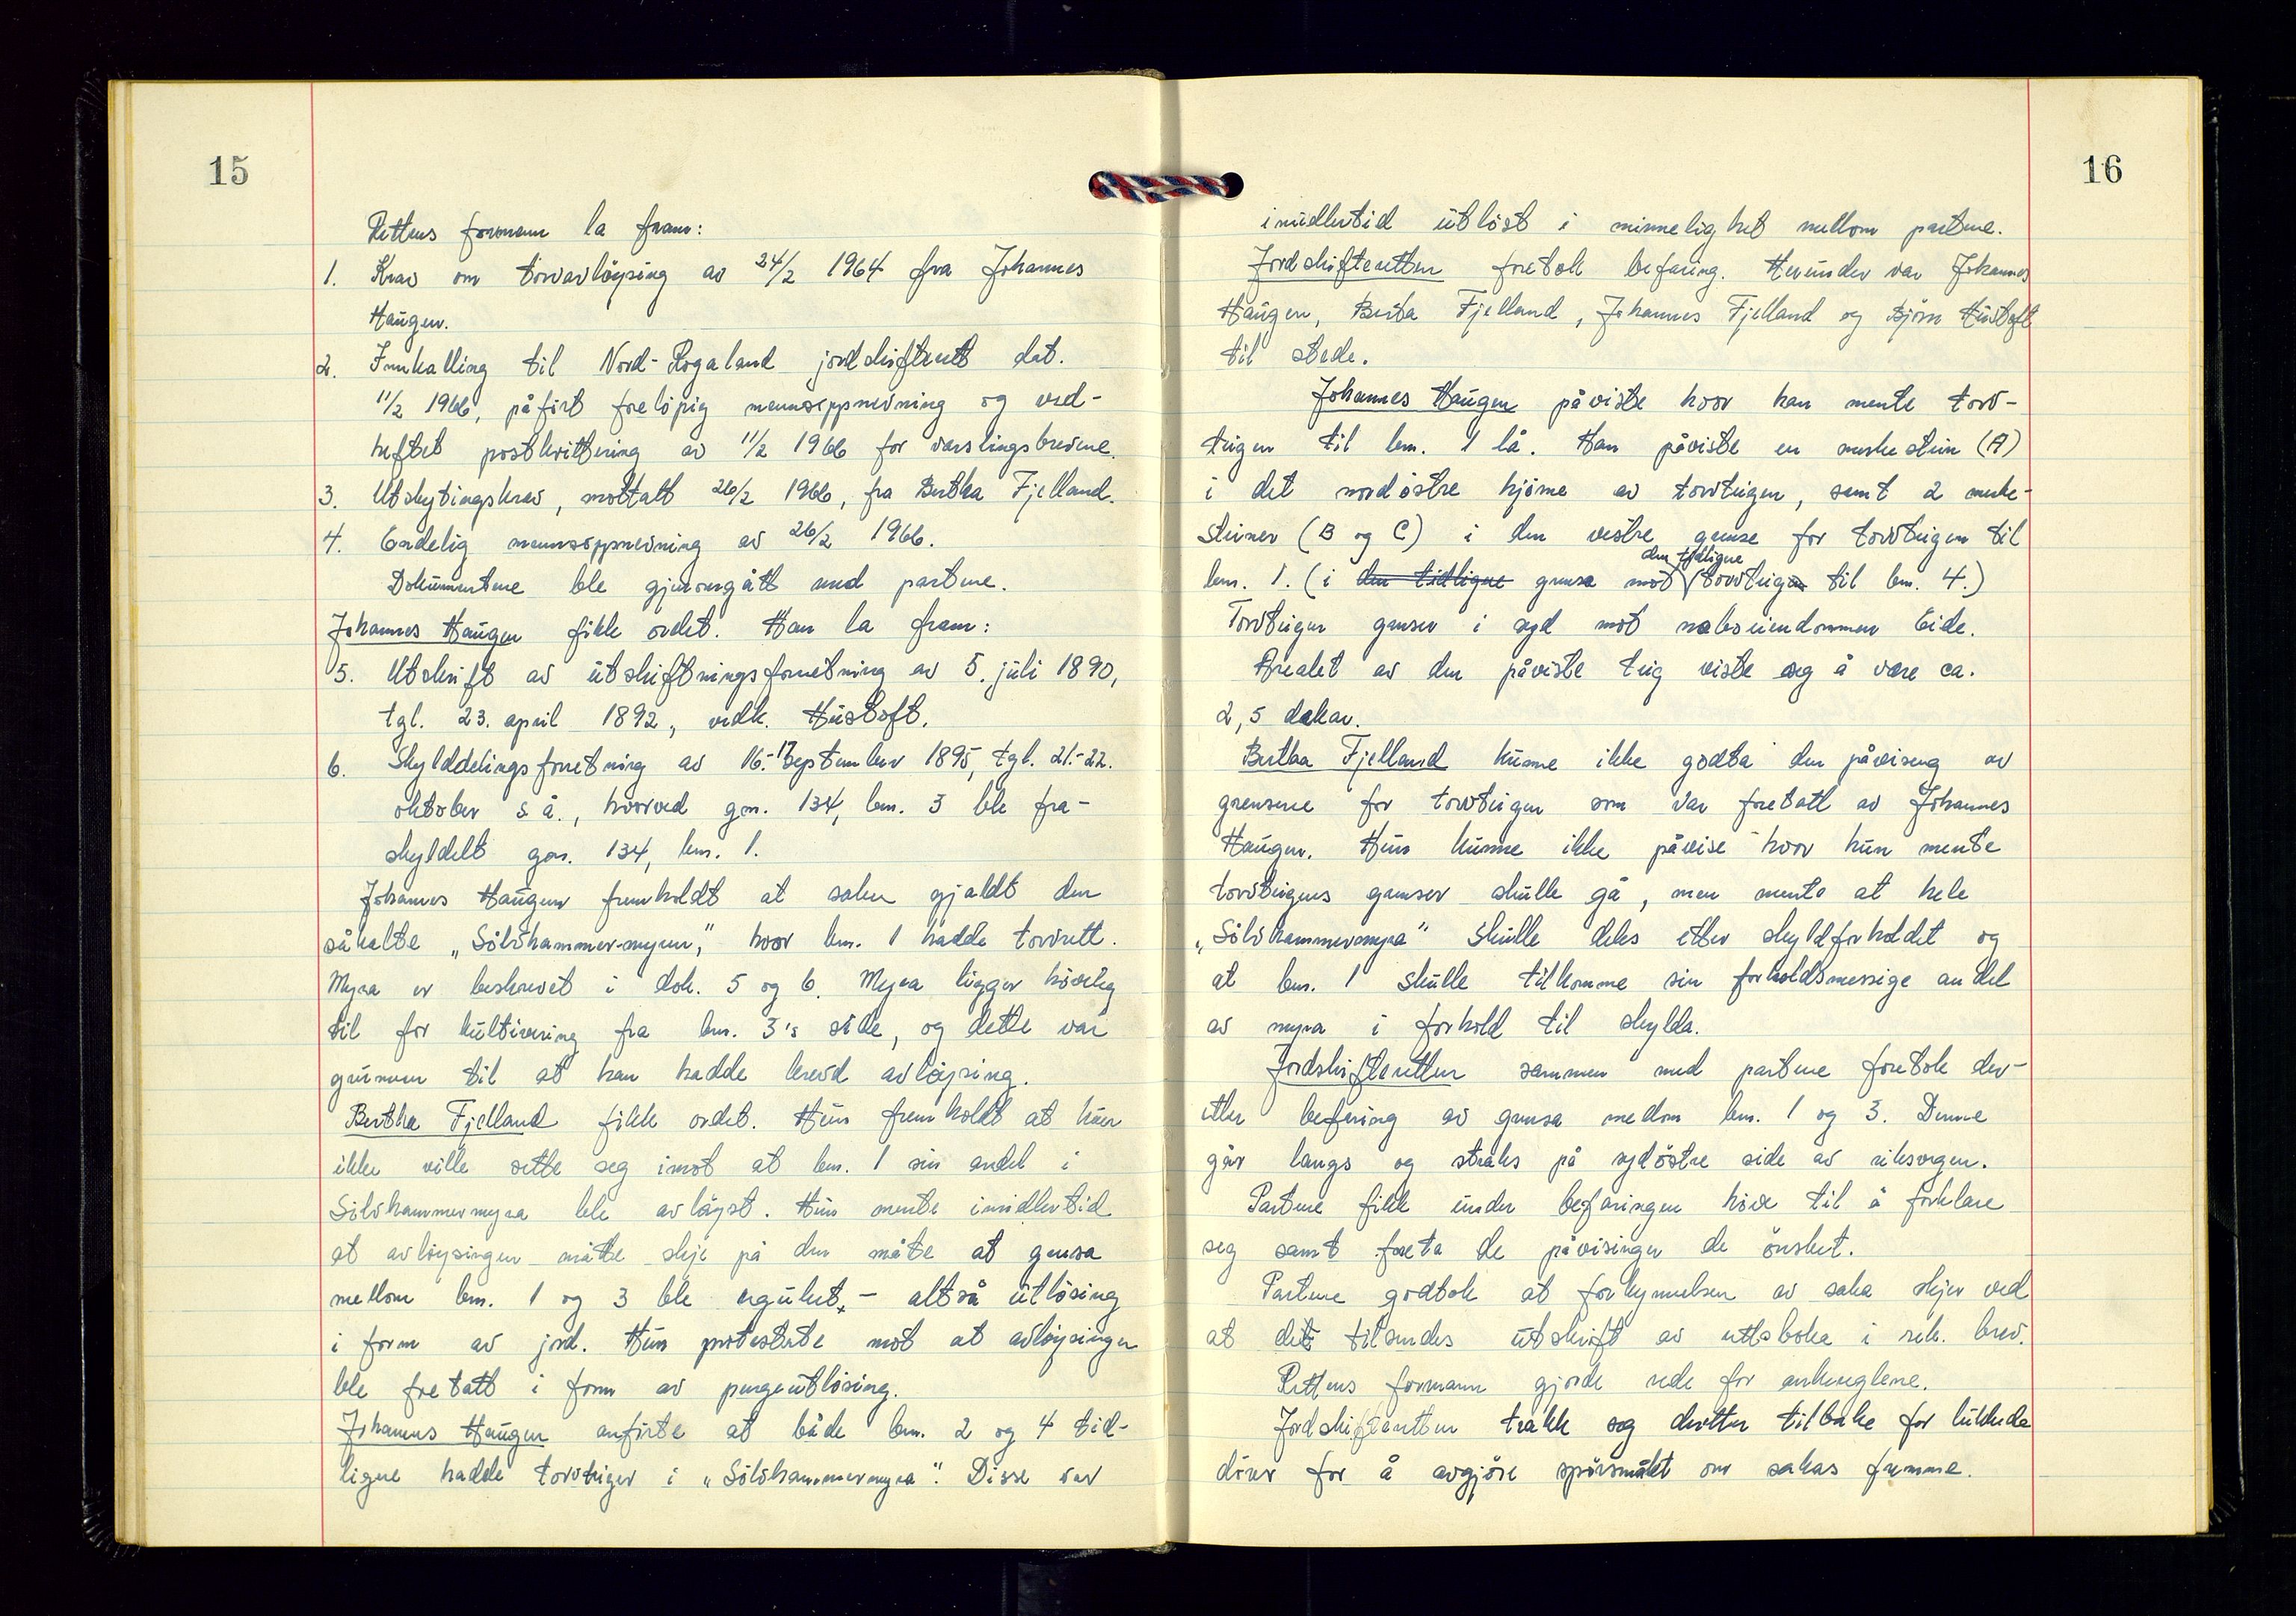 15
Rettens formann la fram:
1. Krav om torvavløysing av 24/2 1964 fra Johannes
Haugen.
2. Innkalling til Nord-Rogaland jordskifterett dat.
11/2 1966, påført foreløpig mennsoppnevning og ved-
heftet postkvittering av 11/2 1966 for varslingsbrevene.
3. Utskytingskrav, mottatt 26/2 1966, fra Bertha Fjelland.
4. Endelig mennsoppnevning av 26/2 1966.
Dokumentene ble gjennomgått med partene.
Johannes Haugen fikk ordet. Han la fram:
5. Utskrift av utskiftningsforretning av 5. juli 1890,
tgl. 23. april 1892, vedk. Hustoft.
6. Skylddelingsforretning av 16.-17. september 1895, tgl. 21.-22.
oktober s.å., hvorved gnr. 134, bnr. 3 ble fra-
skyldelt gnr. 134, bnr. 1.
Johannes Haugen fremholdt at saken gjaldt den
såkalte „Sølvhammer-myren,” hvor bnr. 1 hadde torvrett.
Myra er beskrevet i dok. 5 og 6. Myra ligger høvelig
til for kultivering fra bnr. 3's side, og dette var
grunnen til at han hadde krevd avløysing.
Bertha Fjelland fikk ordet. Hun fremholdt at hun
ikke ville sette seg imot at bnr. 1 sin andel i
Sølvhammermyra ble avløyst. Hun mente imidlertid
at avløysingen måtte skje på den måte at grensa
mellom bnr. 1 og 3 ble regulert, - altså utløsing
i form av jord. Hun protesterte mot at avløysingen
ble foretatt i form av pengeutløsing.
Johannes Haugen anførte at både bnr. 2 og 4 tid-
ligere hadde torvteiger i „Sølvhammermyra”. Disse var
16
imidlertid utløst i minnelighet mellom partene.
Jordskifteretten foretok befaring. Herunder var Johannes
Haugen, Berta Fjelland, Johannes Fjelland og Bjørn Hustoft
til stede.
Johannes Haugen påviste hvor han mente torv-
teigen til bnr. 1 lå. Han påviste en merkestein (A)
i det nordøstre hjørne av torvteigen, samt 2 merke-
steiner (B og C) i den vestre grense for torvteigen til
den tidligere
bnr. 1. (i den tidligere grensa mot torvteigen til bnr. 4.)
Torvteigen grenser i syd mot naboeiendommen Eide.
Arealet av den påviste teig viste seg å være ca.
2,5 dekar.
Bertha Fjelland kunne ikke godta den påvising av
grensene for torvteigen som var foretatt av Johannes
Haugen. Hun kunne ikke påvise hvor hun mente
torvteigens grenser skulle gå, men mente at hele
„Sølvhammermyra” skulle deles etter skyldforholdet og
at bnr. 1 skulle tilkomme sin forholdsmessige andel
av myra i forhold til skylda.
Jordskifteretten sammen med partene foretok der-
etter befaring av grensa mellom bnr. 1 og 3. Denne
går langs og straks på sydøstre side av riksvegen.
Partene fikk under befaringen høve til å forklare
seg samt foreta de påvisinger de ønsket.
Partene godtok at forkynnelsen av saka skjer ved
at det tilsendes utskrift av rettsboka i rek. brev.
Rettens formann gjorde rede for ankereglene.
Jordskifteretten trakk seg deretter tilbake for lukkede
dører for å avgjøre spørsmålet om sakas fremme.